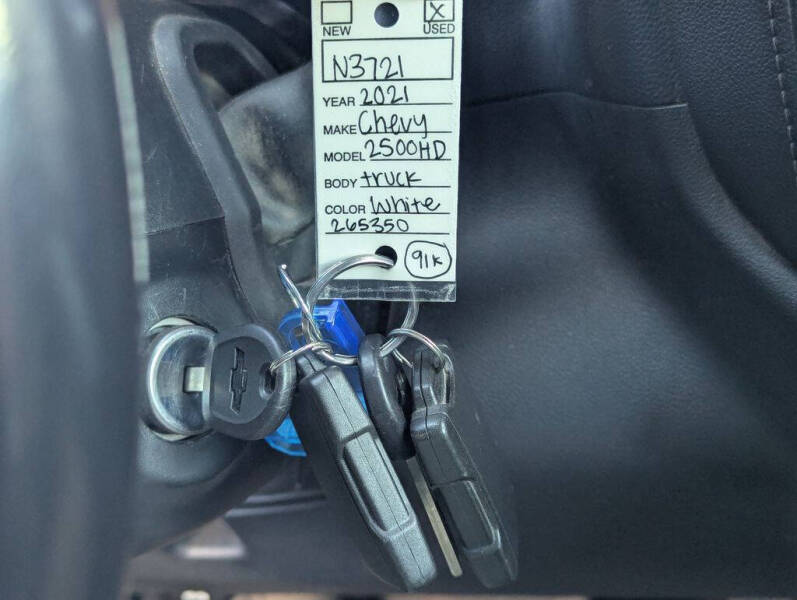 NEW USED
N3721
YEAR 2021
MAKE Chevy
MODEL 2500HD
BODY truck
COLOR White
265350
91K